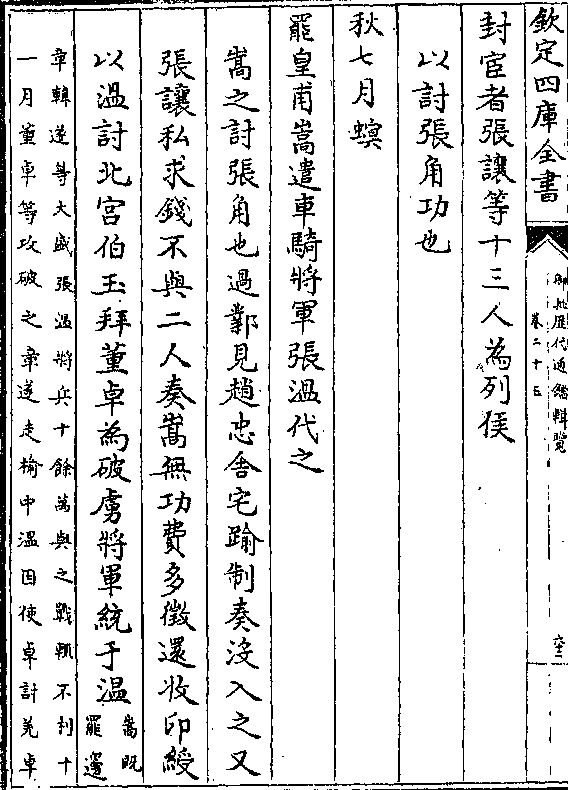 欽定四庫全書
御批歷代通鑑輯覽
卷二十五
封宦者張讓等十三人為列侯
以討張角功也
秋七月螟
罷皇甫嵩遣車騎將軍張溫代之
嵩之討張角也過鄴見趙忠舍宅踰制奏沒入之又
張讓私求錢不與二人奏嵩無功費多徵還收印綬
以溫討北宮伯玉拜董卓為破虜將軍統于溫
嵩既
罷邊
章韓遂等大盛張溫將兵十餘萬與之戰輒不利十
一月董卓等攻破之章遂走榆中溫因使卓討羌卓